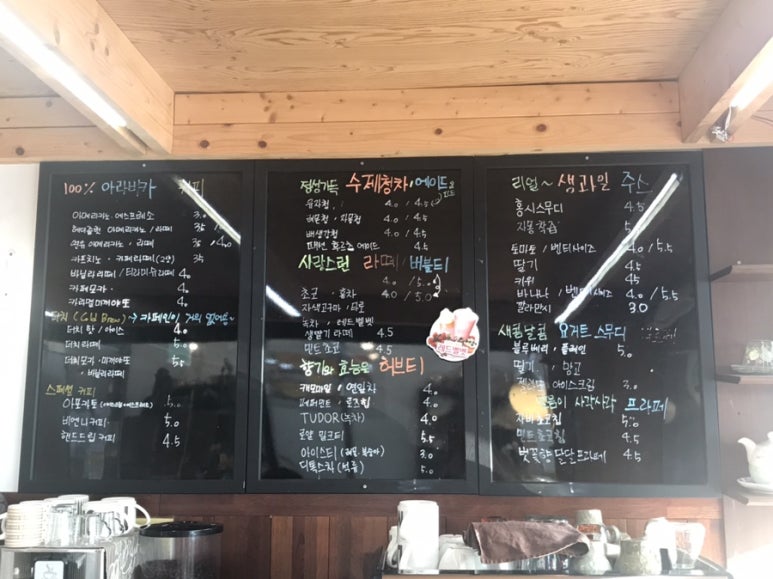 100% 아라비카 커피
아메리카노 에스프레소 3.0
헤이즐럿 아메리카노 / 라떼 3.5 / 4.0
연유 아메리카노 / 라떼 3.5
카푸치노 · 카페라떼 (2샷) 3.5
바닐라라떼 / 티라미슈라떼 4.0
카페모카 4.0
카라멜마끼아또 4.0
더치 (Cold Brew) → 카페인이 거의 없어용~
더치 핫 / 아이스 4.0
더치라떼 5.0
더치모카 · 마끼아또 5.5
· 바닐라라떼
스페셜 커피
아포카토 5.0
비엔나커피 5.0
핸드드립 커피 4.5
정성가득 수제청차 / 에이드
유자청 4.0 / 4.5
레몬청 · 자몽청 4.0 / 4.5
배생강청 4.0 / 4.5
에이드 4.5
사랑스런 라떼 버블티
초코 · 홍차 4.0 / 5.0
자색고구마
녹차 · 레드벨벳
생딸기라떼 4.5
민트초코 4.5
레드벨벳
향기와 효능은 허브티
캐모마일 · 연잎차 4.0
페퍼민트 · 로즈힙 4.0
TUDOR (녹차) 4.0
로얄 밀크티 5.5
아이스티 (레몬·복숭아) 3.5
디톡스킥 (석류) 5.0
리얼~ 생과일 주스
홍시스무디 4.5
지몽착즙 5.5
토마토 / 벤티사이즈 4.0 / 5.5
딸기 4.5
키위 4.5
바나나 / 벤티사이즈 4.0 / 5.5
깔라만시 3.0
새콤달콤 요거트 스무디
블루베리 · 플레인 5.0
딸기 · 망고
아이스크림 3.0
얼음이 사각사각 프라페
자바초코칩 5.0
민트초코칩 4.5
벚꽃향 달달 프라페 4.5